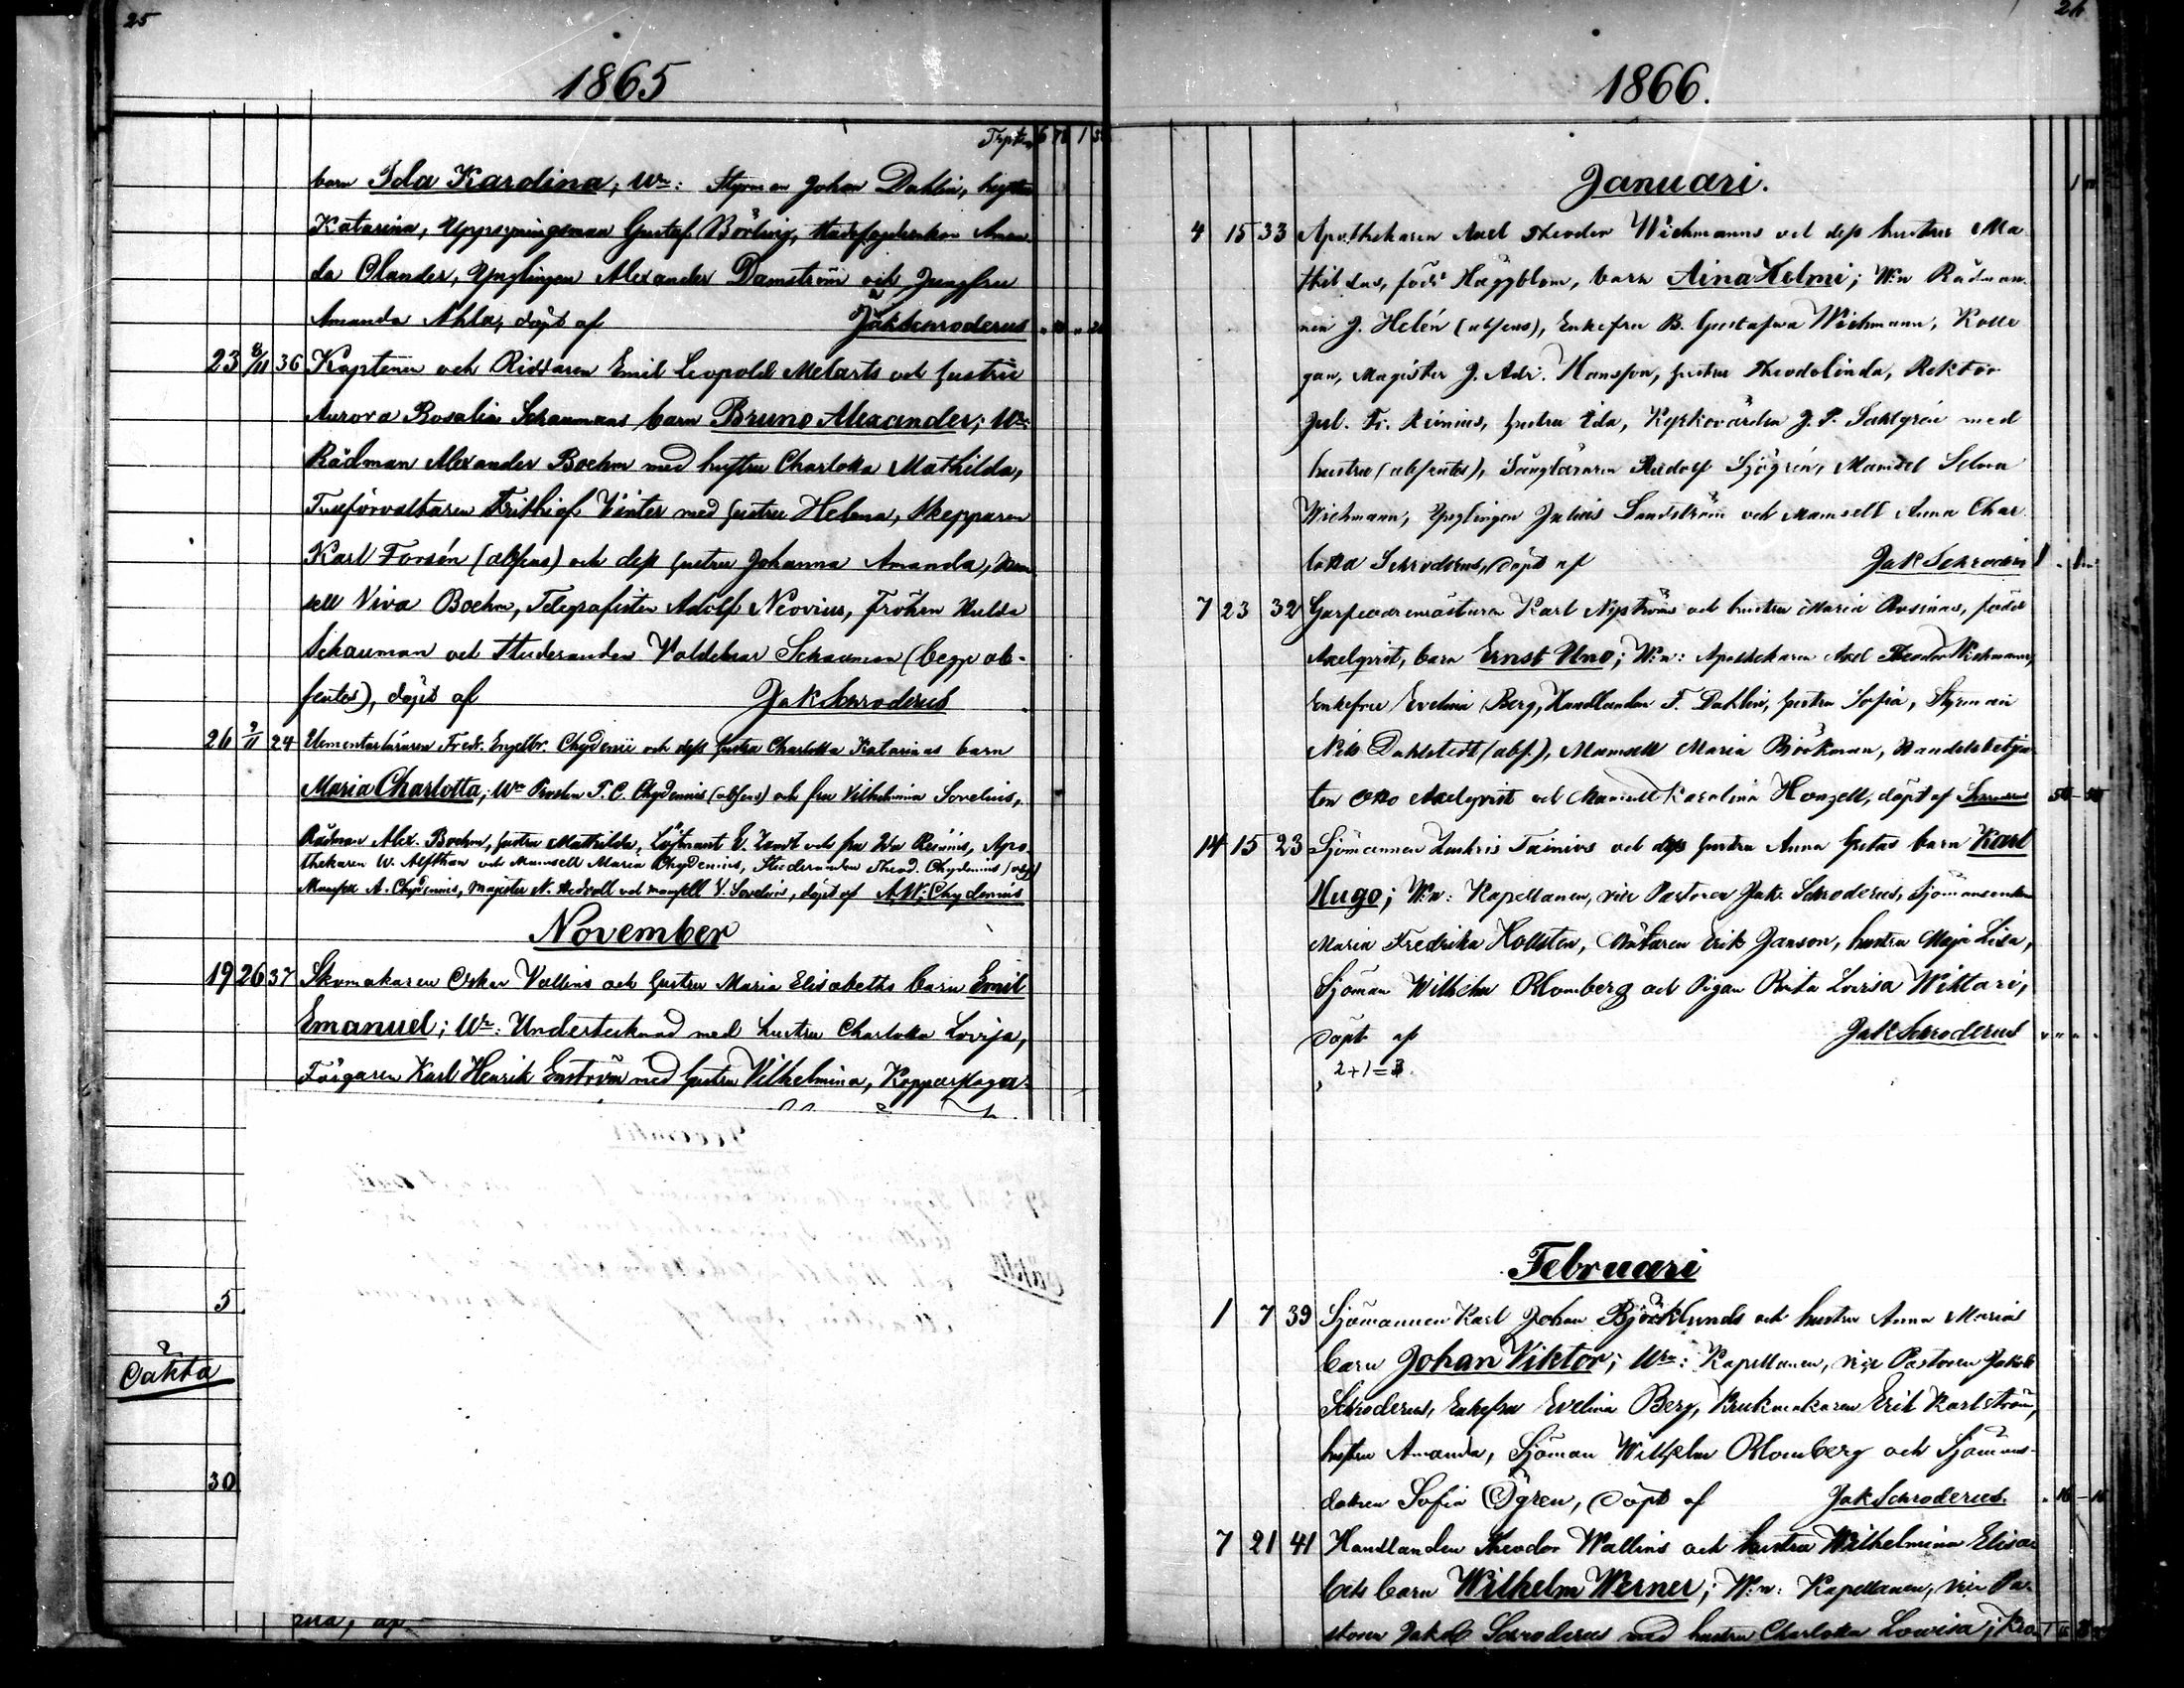 25
1865
Trpt. 6 78 1
barn Ida Karolina; Wn: Styrman Johan Dahlin, hustru
Katarina, Uppsyningsman Gustaf Börling, Aman-
da Olander, Ynglingen Alexander Damström och Jungfru
Amanda Ahla, döpt af Jak Schroderus
23 8/11 36 Kaptenen och Riddaren Emil Leopold Melarts och hustru
Aurora Rosalia Schaumans barn Bruno Alexander; Wn:
Rådman Alexander Boehm med hustru Charlotta Mathilda,
Tullförvaltaren Frithiof Winter med hustru Helena, Skepparen
Karl Forsén (absens) och dess hustru Johanna Amanda, Mam-
sell Viva Boehm, Telegrafisten Adolf Neovius, Fröken Hulda
Schauman och Studeranden Valdemar Schauman (begge ab-
sentes), döpt af Jak Schroderus
26 9/11 24 Elementarläraren Fredr. Engelbr. Chydenii och dess hustru Charlotta Katarinas barn
Maria Charlotta; Wn Prosten T. C. Chydenius (absens) och fru Vilhelmina Sovelius,
Rådman Alex. Boehm, hustru Mathilda, Löjtnant E. och fru Reinius, Apo-
thekaren W. Alfthan och Mamsell Maria Chydenius, Studeranden Theod. Chydenius (abs)
Mamsell A. Chydenius, Magister N. Hedvall och mamsell V. Sovelius, döpt af A. W. Chydenius
November
19 26 37 Skomakaren Oskar Vallins och hustru Maria Elisabeths barn Emil
Emanuel; Wn: Undertecknad med hustru Charlotta Lovisa,
Färgaren Karl Henrik Enström med hustru Vilhelmina, Kopparslaga-
5
Oäkta
30
na, af
26
1866.
Januari.
4 15 33 Apothekaren Axel Theodor Wichmanns och dess hustru Ma-
thildas, född Häggblom, barn Aina Helmi; W:n Rådman-
nen J. Helén (absens), Enkefru B. Gustafva Wichmann, Kolle-
gan, Magister J. Adr. Hansson, hustru Theodolinda, Rektor
Jul. Fr. Reinius, hustru Ida, Kyrkovärden J. P. Sahlgrén med
hustru (absentes), Sångläraren Rudolf Sjögrén, Mamsel Selma
Wichmann, Ynglingen Julius Sandström och Mamsell Anna Char-
lotta Schroderus, döpt af Jak Schroderus
7 23 32 Garfvaremästaren Karl Nyströms och hustru Maria Rosinas, född
Axelqvist, barn Ernst Uno; W:n: Apothekaren Axel Theodor Wichmann,
Enkefru Evelina Berg, Handlanden F. Dahlin, hustru Sofia, Styrman
Nils Dahlstedt (abs.), Mamsell Maria Björkman, Handelsbetjen-
ten Otto Axelqvist och Mamsell Karolina Honzell, döpt af Schroderus 50 - 50
14 15 23 Sjömannen Zackris Tainios och dess hustru Anna Gretas barn Karl
Hugo; W:n: Kapellanen, vice Pastoren Jak. Schroderus, Sjömansenkan
Maria Fredrika Hollsten, Erik Janson, hustru Maja Lisa,
Sjöman Wilhelm Blomberg och Pigan Brita Lovisa Wittari,
döpt af Jak Schroderus
2+1=3.
Februari
1 7 39 Sjömannen Karl Johan Björklunds och hustru Anna Marias
barn Johan Viktor; Wn: Kapellanen, vice Pastoren Jakob
Schroderus, Enkefru Evelina Berg, Krukmakaren Erik Karlström,
hustru Amanda, Sjöman Wilhelm Blomberg och Sjömans-
dottren Sofia Ögren, döpt af Jak Schroderus. 16 - 16
7 21 41 Handlanden Theodor Wallins och hustru Wilhelmina Elisa-
bets barn Wilhelm Werner; W:n: Kapellanen, vice Pa-
storen Jakob Schroderus med hustru Charlotta Lowisa, Kro-